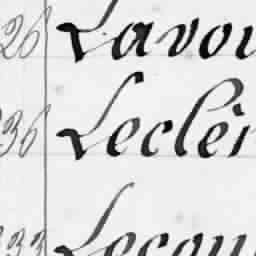 26 Lavou
236 Leclèr
233 Lecou